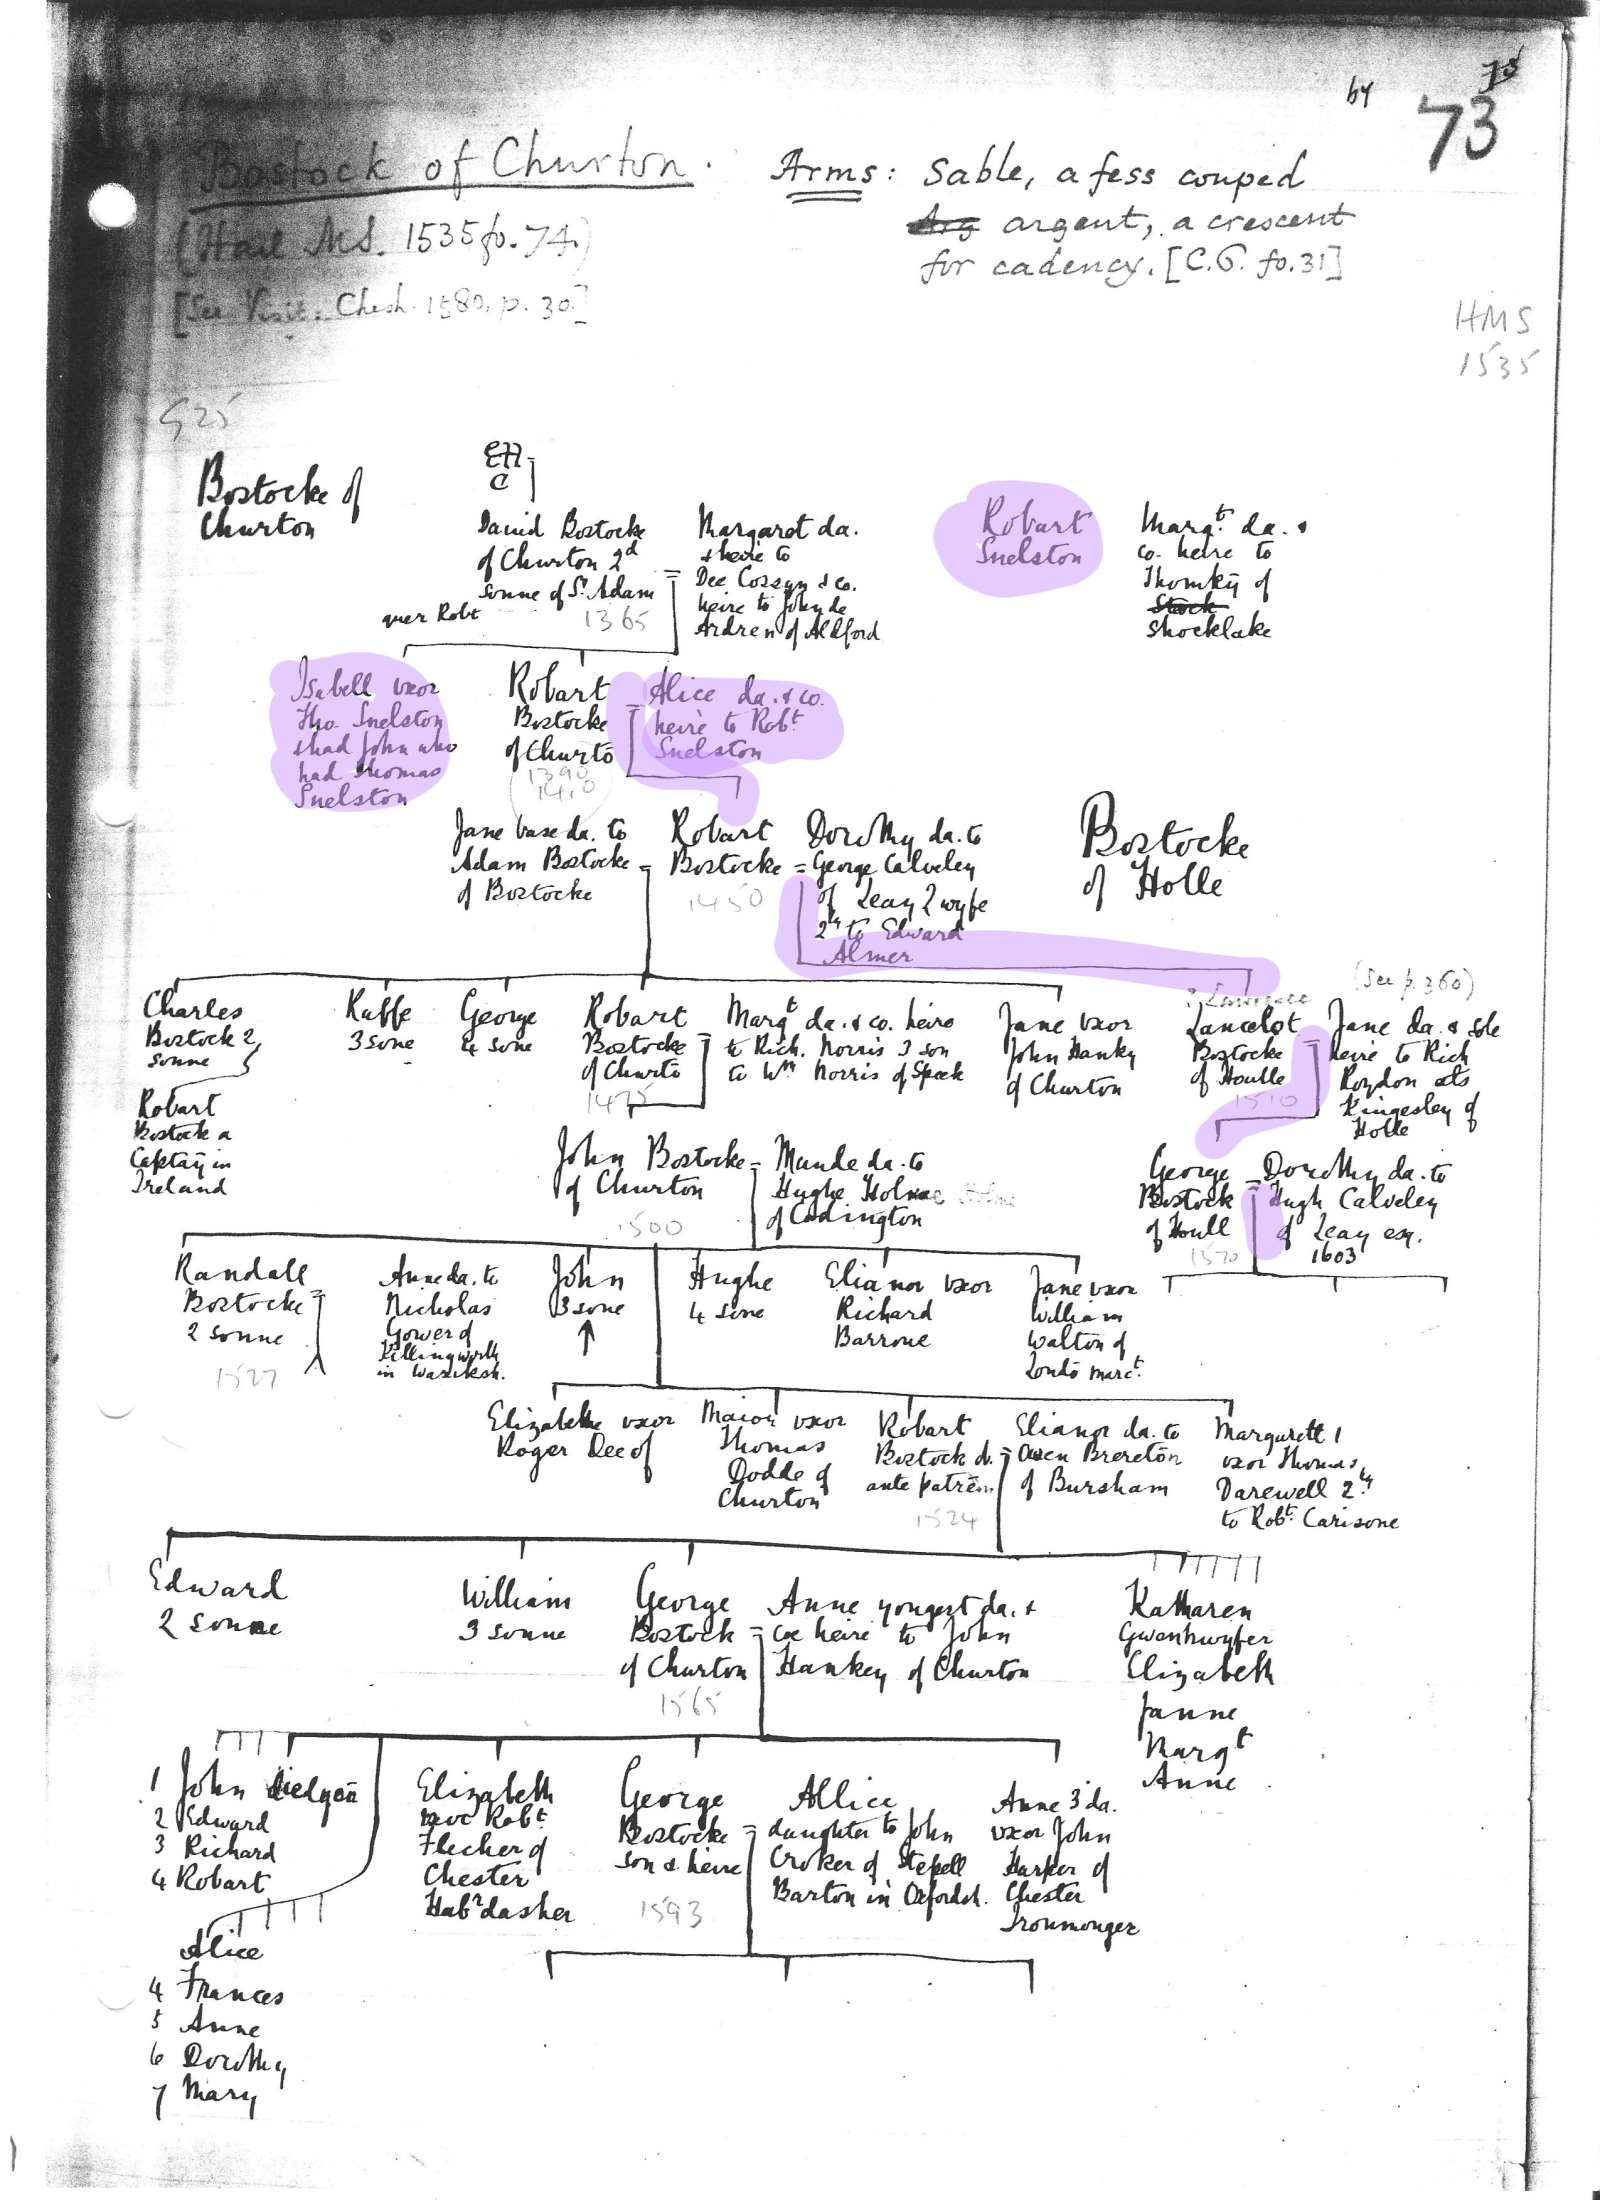 by 73
73
Bostock of Churton. Arms: Sable, a fess couped
(Harl MS. 1535 fo. 74.) argent, a crescent
for cadency. [C.G. fo. 31]
[See Visit. Chesh. 1580, p. 30.]
HMS
1535
Bostocke of
Churton
C
David Bostocke
of Churton 2d
sonne of Sr Adam
1365
Margaret da.
& heire to
Dee Cossyn & co.
heire to John de
Ardren of Aldford
Robart
Snelston
Margt. da. &
co. heire to
Thomky of
Stock
Shocklake
quer Robt
Isabell uxor
Tho. Snelston
& had John who
had Thomas
Snelston
Robart
Bostocke
of Churtō
1390
1410
Alice da. & co.
heire to Robt.
Snelston
Jane base da. to
Adam Bostocke
of Bostocke
Robart
Bostocke
1450
Dorothy da. to
George Calveley
of Leay 2 wyfe
2ly to Edward
Almer
Bostocke
of Holle
Charles
Bostock 2
sonne
Raffe
3 sone
George
4 sone
Robart
Bostocke
of Churtō
1475
Margt da. & co. heire
to Rich. Norris 3 son
to Wm Norris of Speek
Jane uxor
John Hanky
of Churton
? Lawrence
Lancelot
Bostocke
of Houlle
1510
(See p. 360)
Jane da. & sole
heire to Rich
Roydon als
Kingesley of
Holle
Robart
Bostock a
Captaȳ in
Ireland
John Bostocke
of Churton
1500
Maude da. to
Hughe Holme Holme
of Codington
George
Bostock
of Houll
1570
Dorothy da. to
Hugh Calveley
of Leay esq.
1603
Randall
Bostocke
2 sonne
1527
Anne da. to
Nicholas
Gower of
Killingworth
in Wariksh.
John
3 sone
Hughe
4 sone
Elianor uxor
Richard
Barrone
Jane uxor
William
Walton of
Londō marct.
Elizabethe uxor
Roger Dee of
uxor
Thomas
Dodde of
Churton
Robart
Bostock d.
ante patrem
1524
Elianor da. to
Owen Brereton
of Bursham
Margarett 1
uxor Thomas
Darewell 2ly
to Robt. Carisone
Edward
2 sonne
William
3 sonne
George
Bostock
of Churton
1565
Anne yongest da. &
coe heire to John
Hankey of Churton
Katharen
Gwenhwyfer
Elizabeth
Janne
Margt
Anne
1 John
2 Edward
3 Richard
4 Robart
Elizabeth
uxor Robt
Flecher of
Chester
Habrdasher
George
Bostocke
son & heire
1593
Allice
daughter to John
Croker of Stepell
Barton in Oxfordsh.
Anne 3 da.
uxor John
Harper of
Chester
Ironmonger
Alice
4 Frances
5 Anne
6 Dorothy
7 Mary